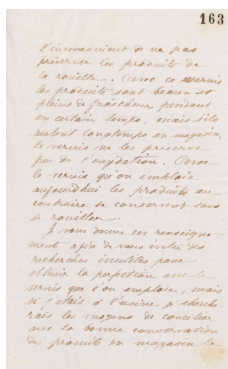 163
l'inconvénient de ne pas
préserver les produits de
la rouille. Avec ce vernis
les produits sont beaux et
pleins de fraîcheur pendant
un certain temps, mais s'ils
restent longtemps en magasin,
le vernis ne les préserve
pas de l'oxydation. Avec
le vernis qu'on emploie
aujourd'hui les produits au
contraire se conservent sans
se rouiller.
Je vous donne ces renseigne
ment afin de vous éviter des
recherches inutiles pour
obtenir la perfection avec le
vernis que l'on emploie, mais
si j'étais à l'usine je cherche
rais les moyens de concilier
avec la bonne conservation
des produits en magasin le